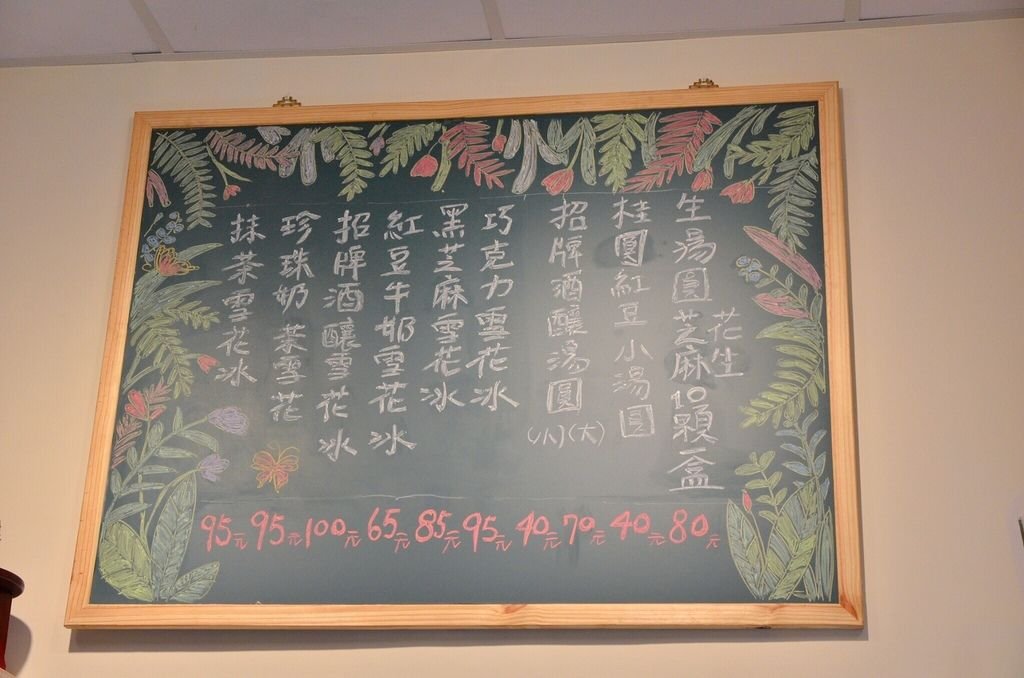 生湯圓芝麻花生10顆一盒
桂圓紅豆小湯圓
招牌酒釀湯圓(小)(大)
巧克力雪花冰
黑芝麻雪花冰
紅豆牛奶雪花冰
招牌酒釀雪花冰
珍珠奶茶雪花
抹茶雪花冰
95元 95元 100元 65元 85元 95元 40元 70元 40元 80元